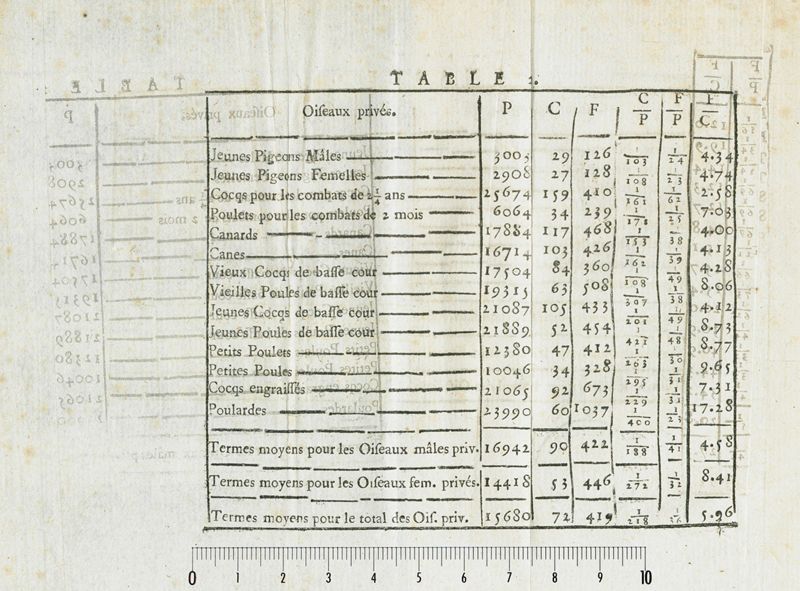 TABLE 2.
Oiſeaux privés. P C F C/P F/P F/C
Jeunes Pigeons Mâles 3003 29 126 1/103 1/24 4.34
Jeunes Pigeons Femelles 2908 27 128 1/108 1/23 4.74
Cocqs pour les combats de 2 1/4 ans 25674 159 410 1/161 1/62 2.58
Poulets pour les combats de 2 mois 6064 34 239 1/178 1/25 7.03
Canards 17884 117 468 1/153 1/38 4.00
Canes 16714 103 426 1/162 1/39 4.13
Vieux Cocqs de baſſe cour 17504 84 360 1/208 1/49 4.28
Vieilles Poules de baſſe cour 19315 63 508 1/307 1/38 8.06
Jeunes Cocqs de baſſe cour 21087 105 433 1/201 1/49 4.12
Jeunes Poules de baſſe cour 21889 52 454 1/421 1/48 8.73
Petits Poulets 12380 47 412 1/263 1/30 8.77
Petites Poules 10046 34 328 1/295 1/31 9.65
Cocqs engraiſſés 21065 92 673 1/229 1/31 7.31
Poulardes 23990 60 1037 1/400 1/23 17.28
Termes moyens pour les Oiſeaux mâles priv. 16942 90 422 1/188 1/41 4.58
Termes moyens pour les Oiſeaux fem. privés. 14418 53 446 1/272 1/32 8.41
Termes moyens pour le total des Oiſ. priv. 15680 72 419 1/218 1/36 5.96
0 1 2 3 4 5 6 7 8 9 10